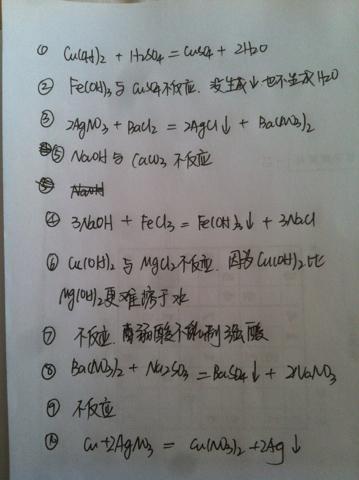 ① Cu(OH)2 + H2SO4 = CuSO4 + 2H2O
② Fe(OH)3与CuSO4不反应. 没生成↓也不生成H2O
③ 2AgNO3 + BaCl2 = 2AgCl↓ + Ba(NO3)2
⑤ NaOH与CaCO3 不反应
④ 3NaOH + FeCl3 = Fe(OH)3↓ + 3NaCl
⑥ Cu(OH)2 与 MgCl2不反应. 因为Cu(OH)2比
Mg(OH)2更难溶于水
⑦ 不反应. 弱酸不能制强酸
⑧ Ba(NO3)2 + Na2SO3 = BaSO4↓ + 2NaNO3
⑨ 不反应
⑩ Cu+2AgNO3 = Cu(NO3)2+2Ag↓